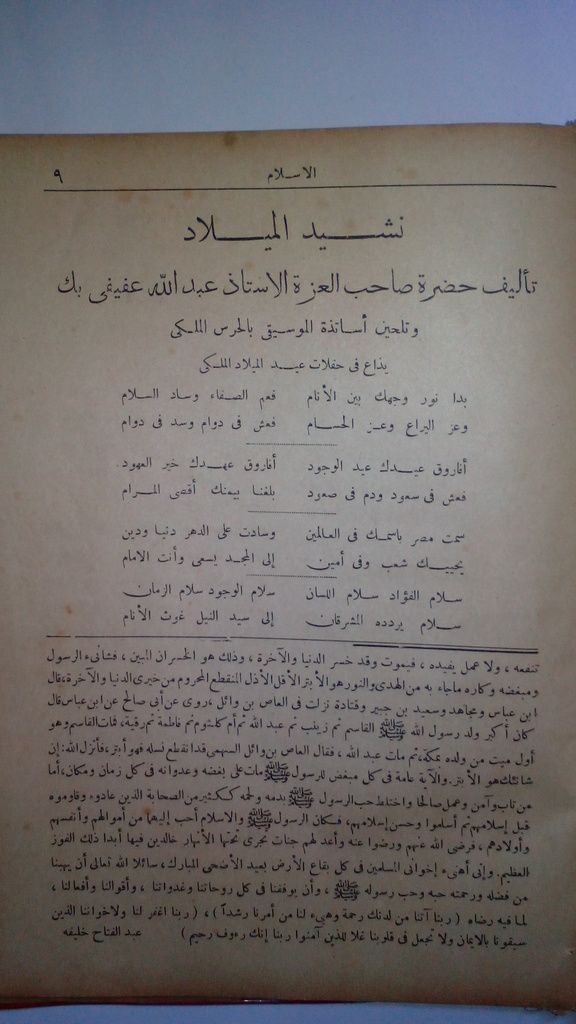 الاسلام ٩
نشيد الميلاد
تأليف حضرة صاحب العزة الاستاذ عبد الله عفيفى بك
وتلحين أساتذة الموسيقى بالحرس الملكى
يذاع فى حفلات عيد الميلاد الملكى
بدا نور وجهك بين الأنام فعم الصفاء وساد السلام
وعز اليراع وعز الحسام فعش فى دوام وسد فى دوام
أفاروق عيدك عيد الوجود أفاروق عهدك خير العهود
فعش فى سعود ودم فى صعود بلغنا بيمنك أقصى المرام
سمت مصر باسمك فى العالمين وسادت على الدهر دنيا ودين
يحييك شعب وفى أمين إلى المجد يسعى وأنت الامام
سلام الفؤاد سلام اللسان سلام الوجود سلام الزمان
سلام يردده المشرقان إلى سيد النيل غوث الأنام
تنفعه ، ولا عمل يفيده ، فيموت وقد خسر الدنيا والآخرة ، وذلك هو الخسران المبين ، فشانىء الرسول
ومبغضه وكاره ماجاء به من الهدى والنور هو الأبتر الأقل الأذل المنقطع المحروم من خيرى الدنيا والآخرة ، قال
ابن عباس ومجاهد وسعيد بن جبير وقتادة نزلت فى العاص بن وائل ، روى عن أبى صالح عن ابن عباس قال
كان أكبر ولد رسول الله ﷺ القاسم ثم زينب ثم عبد الله ثم أم كلثوم ثم فاطمة ثم رقية ، فمات القاسم وهو
أول ميت من ولده بمكة ، ثم مات عبد الله ، فقال العاص بن وائل السهمى قد انقطع نسله فهو أبتر ، فأنزل الله : إن
شانئك هو الأبتر . والآية عامة فى كل مبغض للرسول ﷺ مات على بغضه وعدوانه فى كل زمان ومكان ، أما
من تاب وآمن وعمل صالحا واختلط حب الرسول ﷺ بدمه ولحمه ككثير من الصحابة الذين عادوه وقاوموه
قبل إسلامهم ثم أسلموا وحسن إسلامهم ، فكان الرسول ﷺ والاسلام أحب إليهم من أموالهم وأنفسهم
وأولادهم ، فرضى الله عنهم ورضوا عنه وأعد لهم جنات تجرى تحتها الأنهار خالدين فيها أبدا ذلك الفوز
العظيم . وإنى أهنىء إخوانى المسلمين فى كل بقاع الأرض بعيد الأضحى المبارك ، سائلا الله تعالى أن يهبنا
من فضله ورحمته حبه وحب رسوله ﷺ ، وأن يوفقنا فى كل روحاتنا وغدواتنا ، وأقوالنا وأفعالنا ،
لما فيه رضاه ( ربنا آتنا من لدنك رحمة وهيىء لنا من أمرنا رشدا ) ، ( ربنا اغفر لنا ولاخواننا الذين
سبقونا بالايمان ولا تجعل فى قلوبنا غلا للذين آمنوا ربنا إنك رءوف رحيم ) عبد الفتاح خليفه